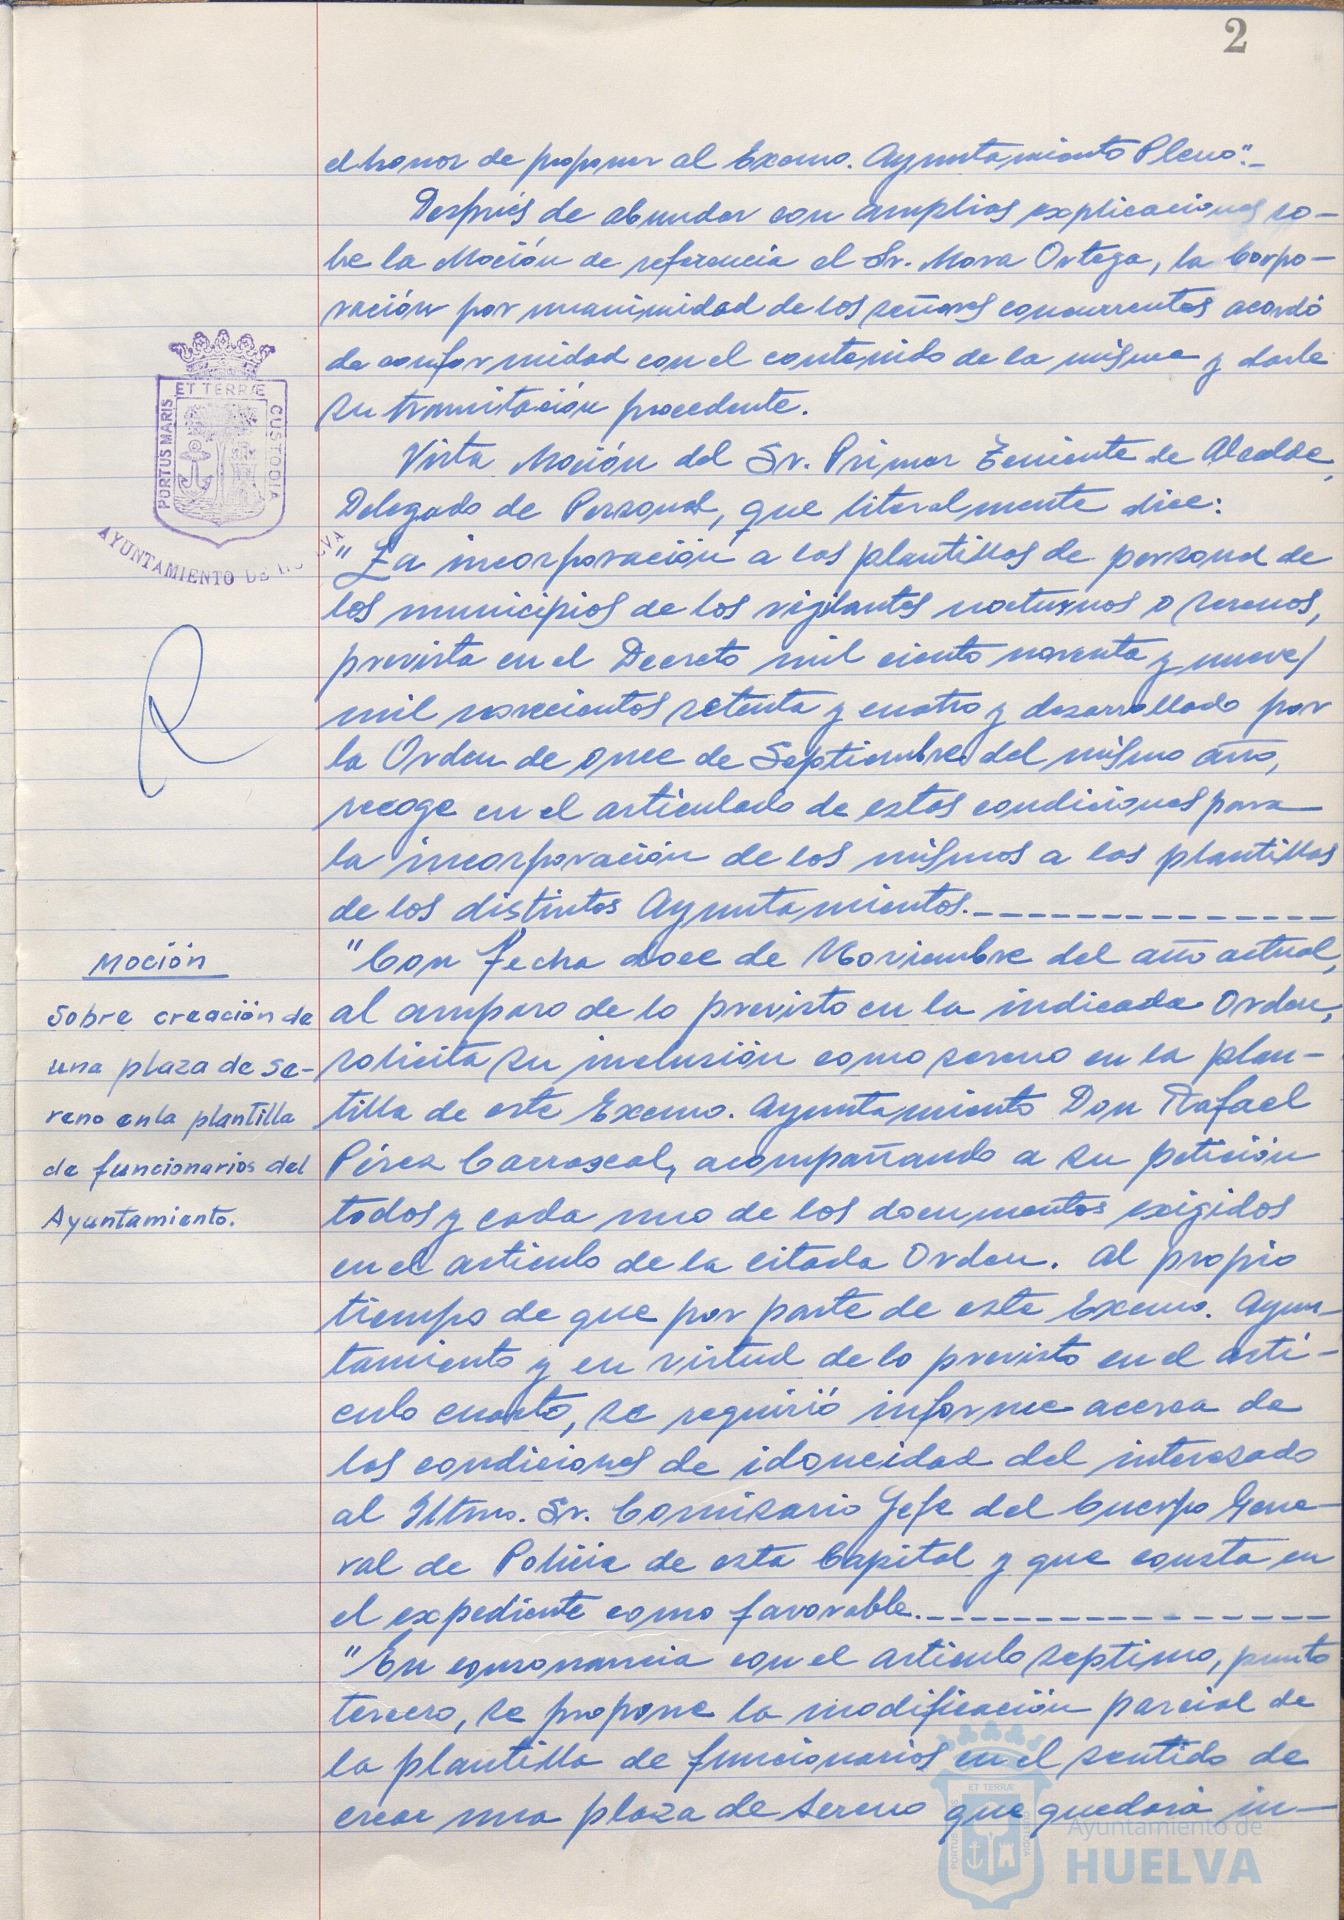 2
el honor de proponer al Excmo. Ayuntamiento Pleno".-
Después de abundar con amplias explicaciones so-
bre la Moción de referencia el Sr. Mora Ortega, la Corpo-
ración por unanimidad de los señores concurrentes acordó
de conformidad con el contenido de la misma y darle
su tramitación procedente.
Vista Moción del Sr. Primer Teniente de Alcalde,
Delegado de Personal, que literalmente dice:
"La incorporación a las plantillas de personal de
los municipios de los vigilantes nocturnos o serenos,
prevista en el Decreto mil ciento noventa y nueve/
mil novecientos setenta y cuatro y desarrollado por
la Orden de once de Septiembre del mismo año,
recoge en el articulado de estas condiciones para
la incorporación de los mismos a las plantillas
de los distintos Ayuntamientos.
Moción
Sobre creación de
una plaza de se-
reno en la plantilla
de funcionarios del
Ayuntamiento.
"Con fecha doce de Noviembre del año actual,
al amparo de lo previsto en la indicada Orden,
solicita su inclusión como sereno en la plan-
tilla de este Excmo. Ayuntamiento Don Rafael
Pérez Carrascal, acompañando a su petición
todos y cada uno de los documentos exigidos
en el articulo de la citada Orden. Al propio
tiempo de que por parte de este Excmo. Ayun-
tamiento y en virtud de lo previsto en el artí-
culo cuarto, se requirió informe acerca de
las condiciones de idoneidad del interesado
al Iltmo. Sr. Comisario Jefe del Cuerpo Gene-
ral de Policia de esta Capital y que consta en
el expediente como favorable.
"En consonancia con el articulo septimo, punto
tercero, se propone la modificación parcial de
la plantilla de funcionarios en el sentido de
crear una plaza de sereno que quedará in-
PORTUS MARIS
ET TERRÆ
CUSTODIA
AYUNTAMIENTO DE HUELVA
PORTUS MARIS
ET TERRÆ
CUSTODIA
Ayuntamiento de
HUELVA